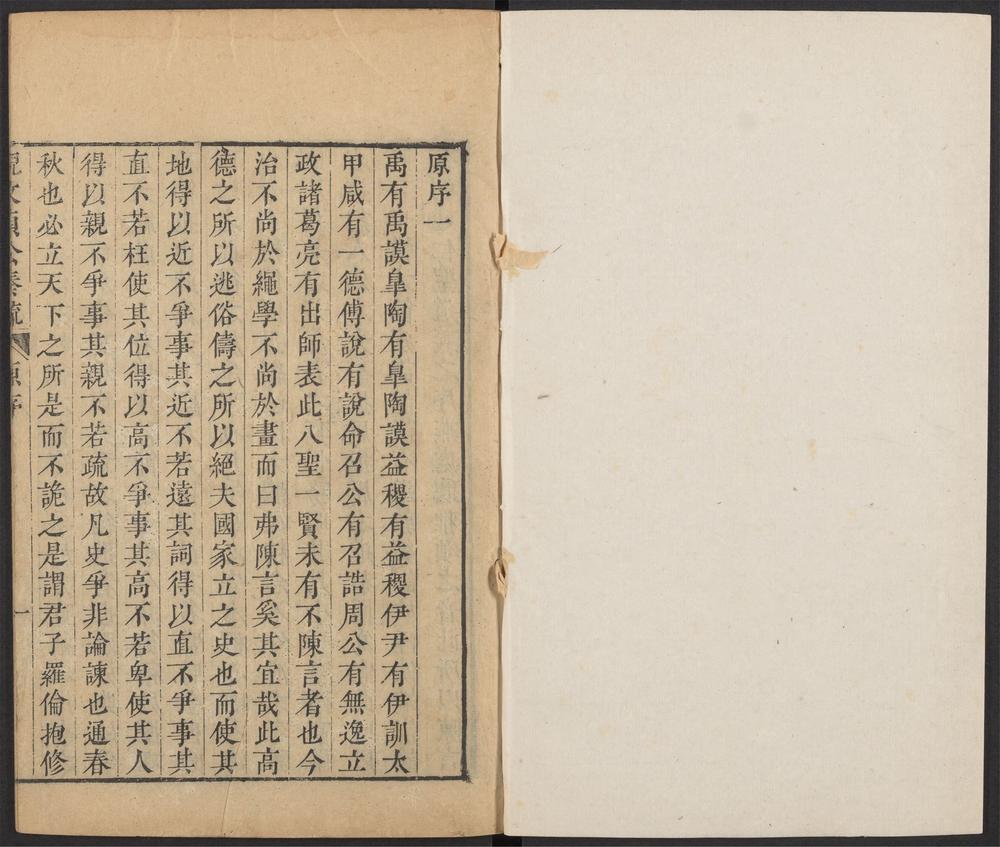 原序一
禹有禹謨臯陶有臯陶謨益稷有益稷伊尹有伊訓太
甲咸有一德傅說有說命召公有召誥周公有無逸立
政諸葛亮有出師表此八聖一賢未有不陳言者也今
治不尚於繩學不尚於畫而曰弗陳言奚其宜哉此高
德之所以逃俗儔之所以絕夫國家立之史也而使其
地得以近不爭事其近不若遠其詞得以直不爭事其
直不若枉使其位得以高不爭事其高不若卑使其人
得以親不爭事其親不若疏故凡史爭非論諫也通春
秋也必立天下之所是而不詭之是謂君子羅倫抱修
奏疏 原序 一